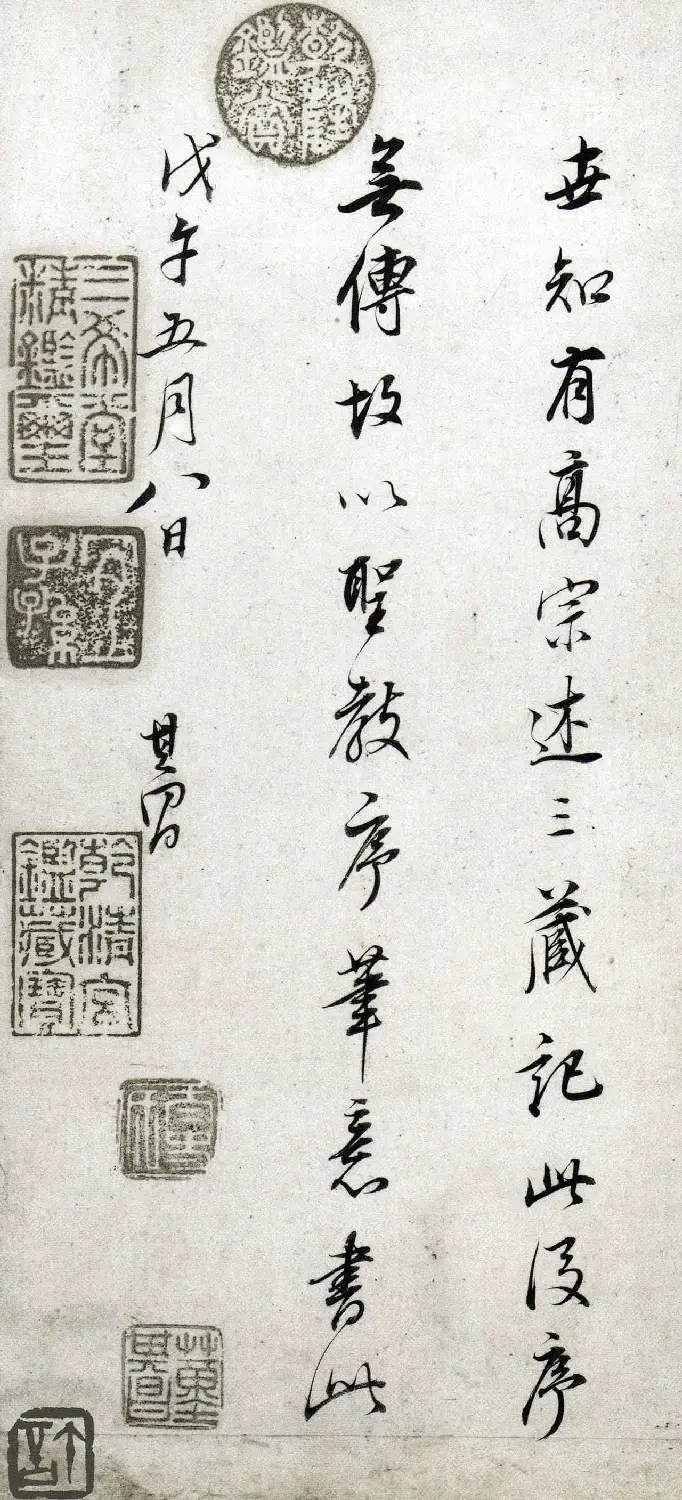 世知有高宗述三藏記此後序
無傳故以聖教序筆意書此
戊午五月八日
其昌
乾隆鑑賞
三希堂精鑑璽
宜子孫
乾清宮鑑藏寶
董其昌
許